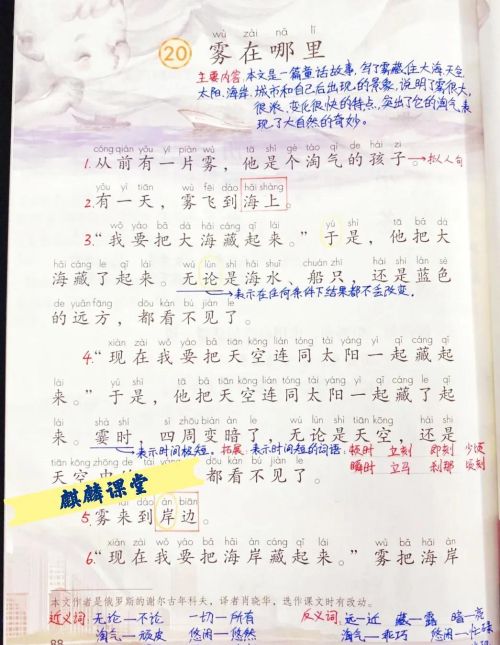 wù zài nǎ lǐ
20 雾在哪里
主要内容 本文是一篇童话故事,写了雾藏住大海,天空,
太阳,海岸,城市和自己后出现的景象,说明了雾很大,
很浓,变化很快的特点,突出了它的淘气,表
现了大自然的奇妙。
cóng qián yǒu yí piàn wù tā shì gè táo qì de hái zi
1.从前有一片雾,他是个淘气的孩子。→拟人句
yǒu yì tiān wù fēi dào hǎi shàng
2.有一天,雾飞到海上。
wǒ yào bǎ dà hǎi cáng qǐ lái yú shì tā bǎ dà
3.“我要把大海藏起来。”于是,他把大
hǎi cáng le qǐ lái wú lùn shì hǎi shuǐ chuán zhī hái shì lán sè
海藏了起来。无论是海水、船只,还是蓝色
→表示在任何条件下结果都不会改变。
de yuǎn fāng dōu kàn bú jiàn le
的远方,都看不见了。
xiàn zài wǒ yào bǎ tiān kōng lián tóng tài yáng yì qǐ cáng qǐ
4.“现在我要把天空连同太阳一起藏起
lái yú shì tā bǎ tiān kōng lián tóng tài yáng yì qǐ cáng le qǐ
来。”于是,他把天空连同太阳一起藏了起
lái shà shí sì zhōu biàn àn wú lùn shì tiān kōng hái shì
来。霎时,四周变暗了,无论是天空,还是
→表示时间极短。 拓展:表示时间短的词语:顿时 立刻 即刻 少顷
瞬时 立马 刹那 顷刻
tiān kōng zhōng de dōu kàn bú jiàn le
天空中 都看不见了。
麒麟课堂
àn biān
5.雾来到岸边。
xiàn zài wǒ yào bǎ hǎi àn cáng qǐ lái wù bǎ hǎi àn
6.“现在我要把海岸藏起来。”雾把海岸
本文作者是俄罗斯的谢尔古年科夫,译者肖晓华,选作课文时有改动。
近义词:无论—不论 一切—所有 反义词:远—近 藏—露 暗—亮
88 淘气—顽皮 悠闲—悠然 淘气—乖巧 悠闲—